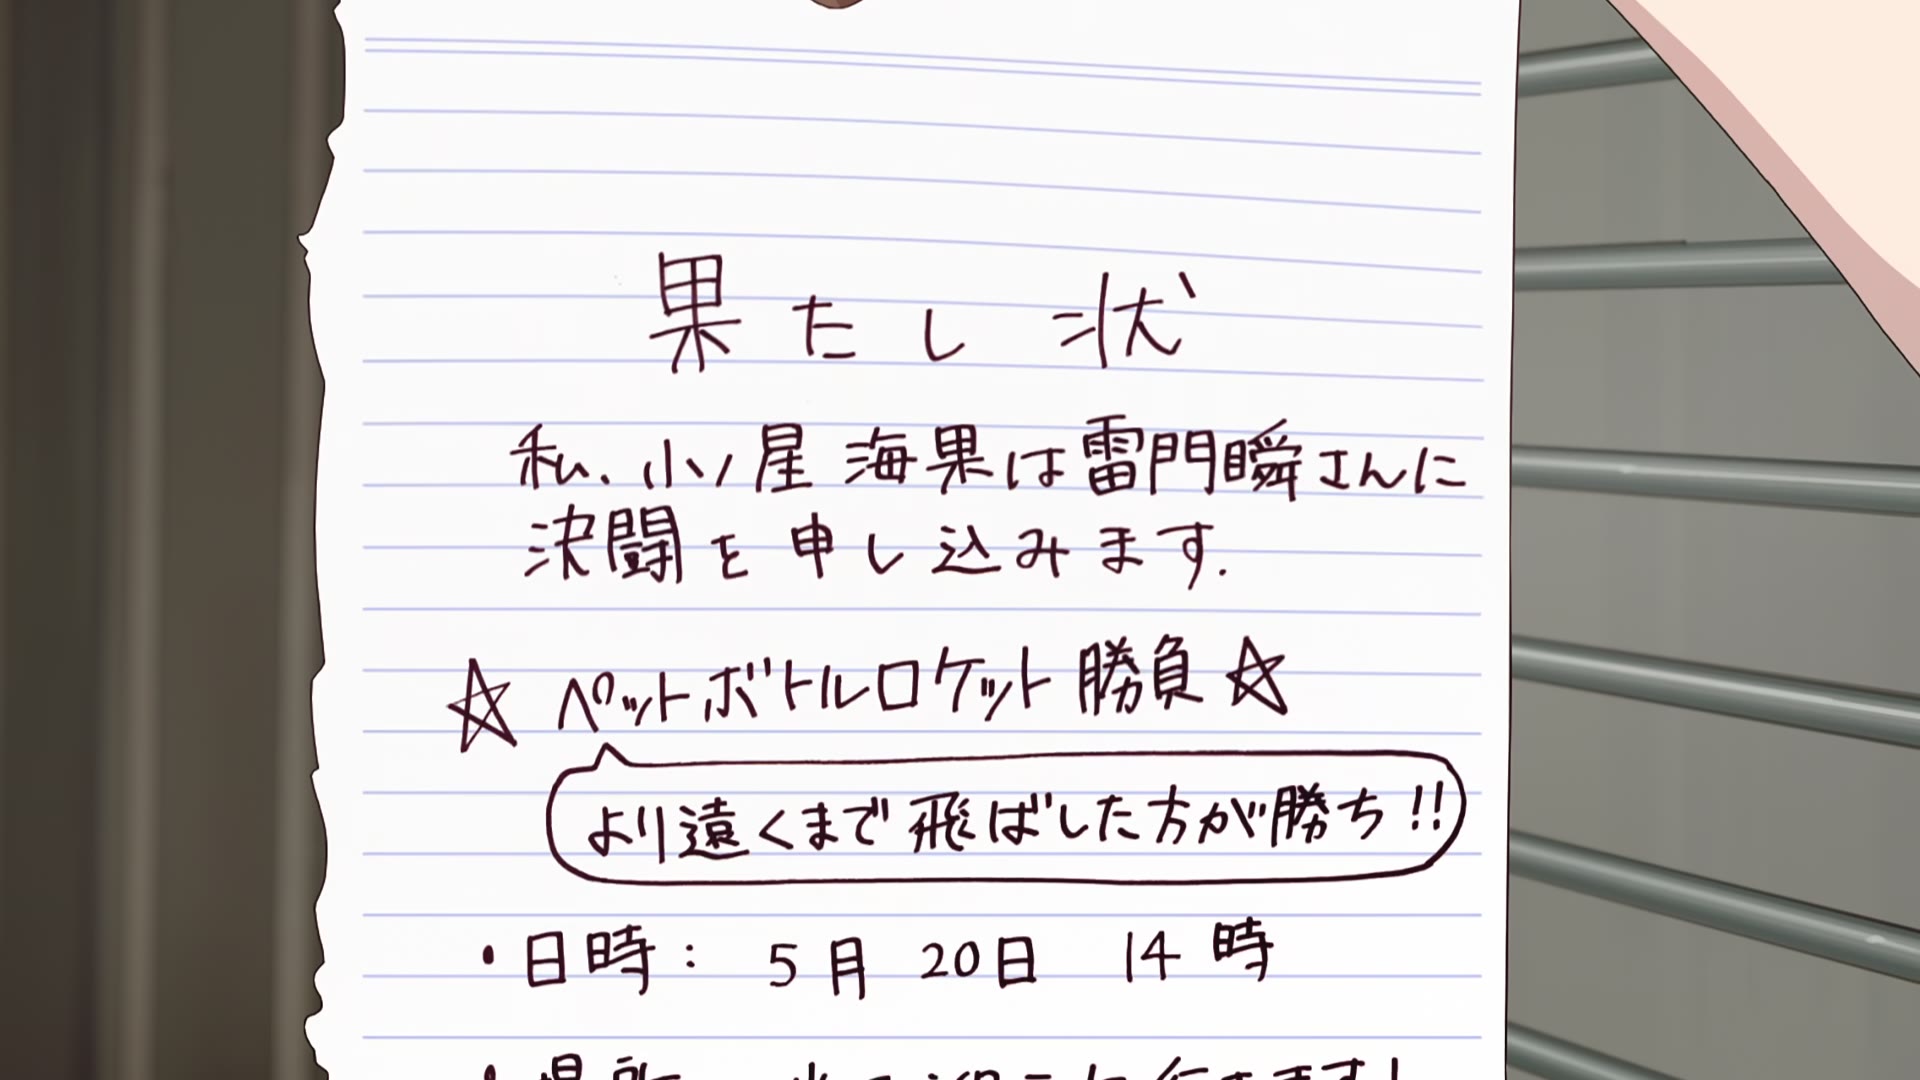 果たし状
私、小ノ星海果は雷門瞬さんに
決闘を申し込みます.
☆ ペットボトルロケット勝負 ☆
より遠くまで飛ばした方が勝ち!!
・日時: 5月 20日 14時